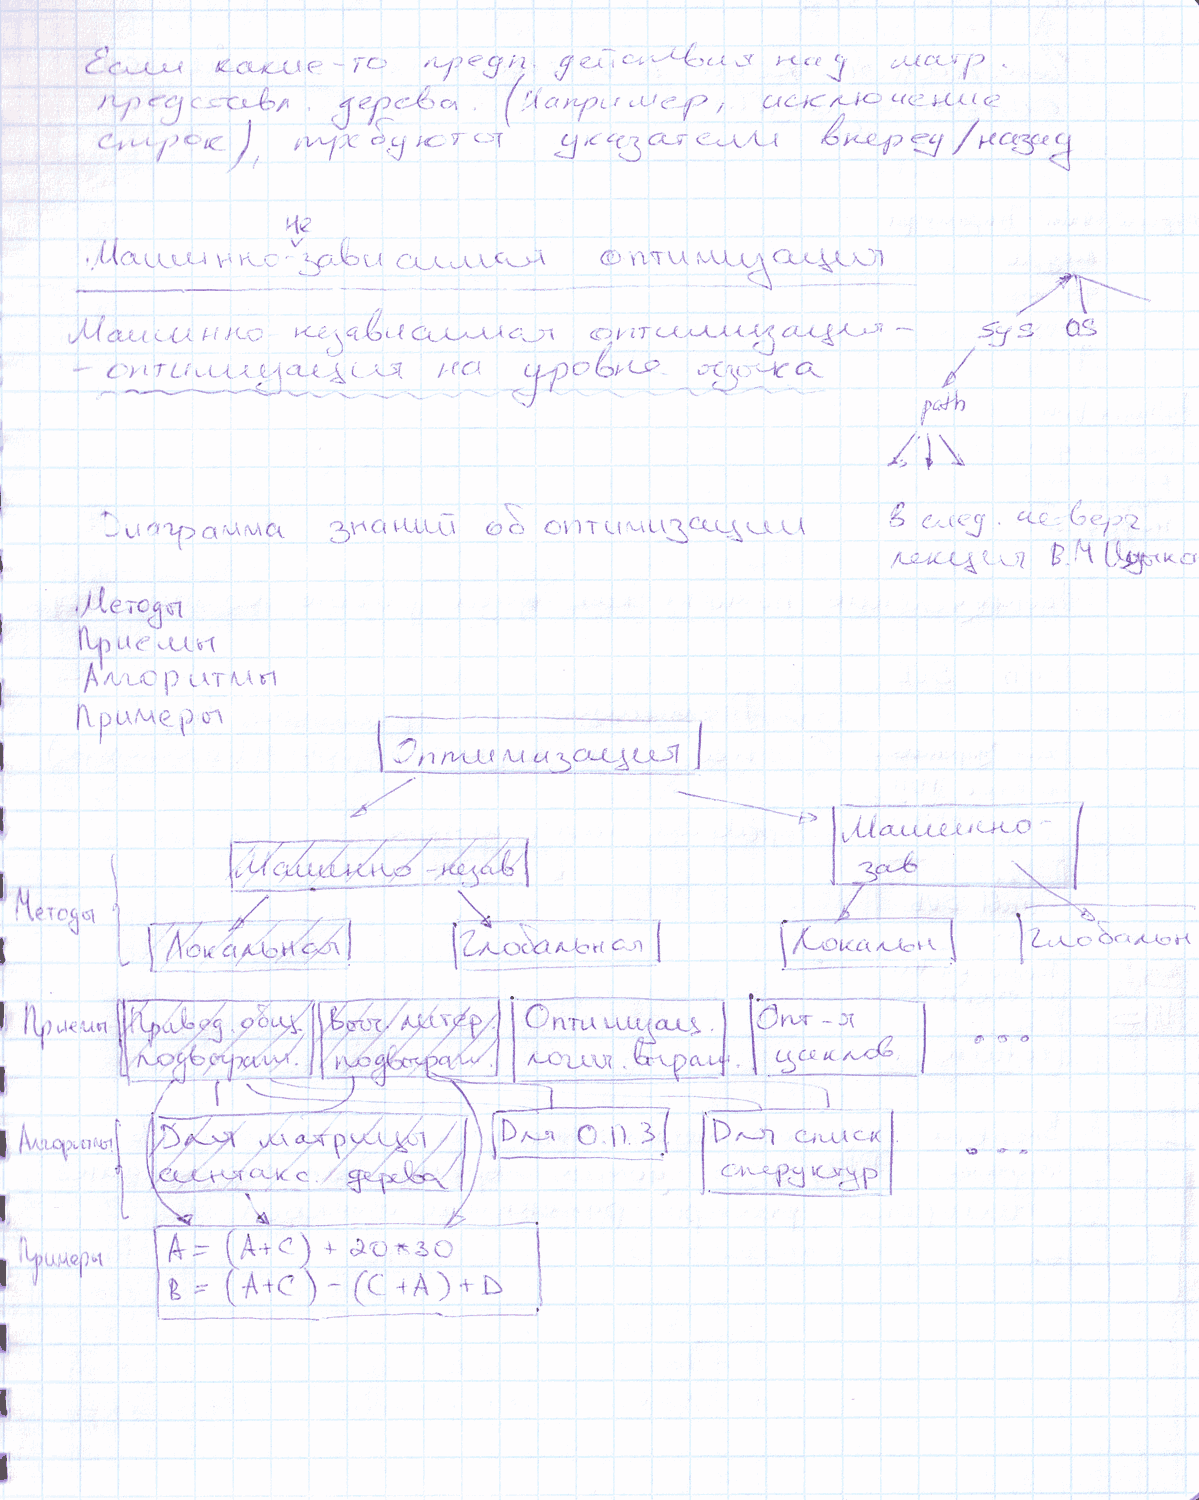 Если какие-то предп. действия над матр.
представл. дерева. (Например, исключение
строк), требуются указатели вперед/назад
Машинно-независимая оптимизация
Машинно-независимая оптимизация-
- оптимизация на уровне языка
sys OS
path
Диаграмма знаний об оптимизации
В след. четверг
лекция В.М.
Методы
Приемы
Алгоритмы
Примеры
Оптимизация
Машинно-незав
Машинно-
зав
Методы
Локальная
Глобальная
Локальн
Глобальн
Приемы
Привед. общ.
подвыраж.
Выч. матер.
подвыраж.
Оптимизац.
логич. выраж.
Опт-я
циклов
...
Алгоритмы
Для матрицы
синтакс. дерева
Для О.П.З
Для списк.
структур
...
Примеры
A = (A+C) + 20*30
B = (A+C) - (C+A) + D